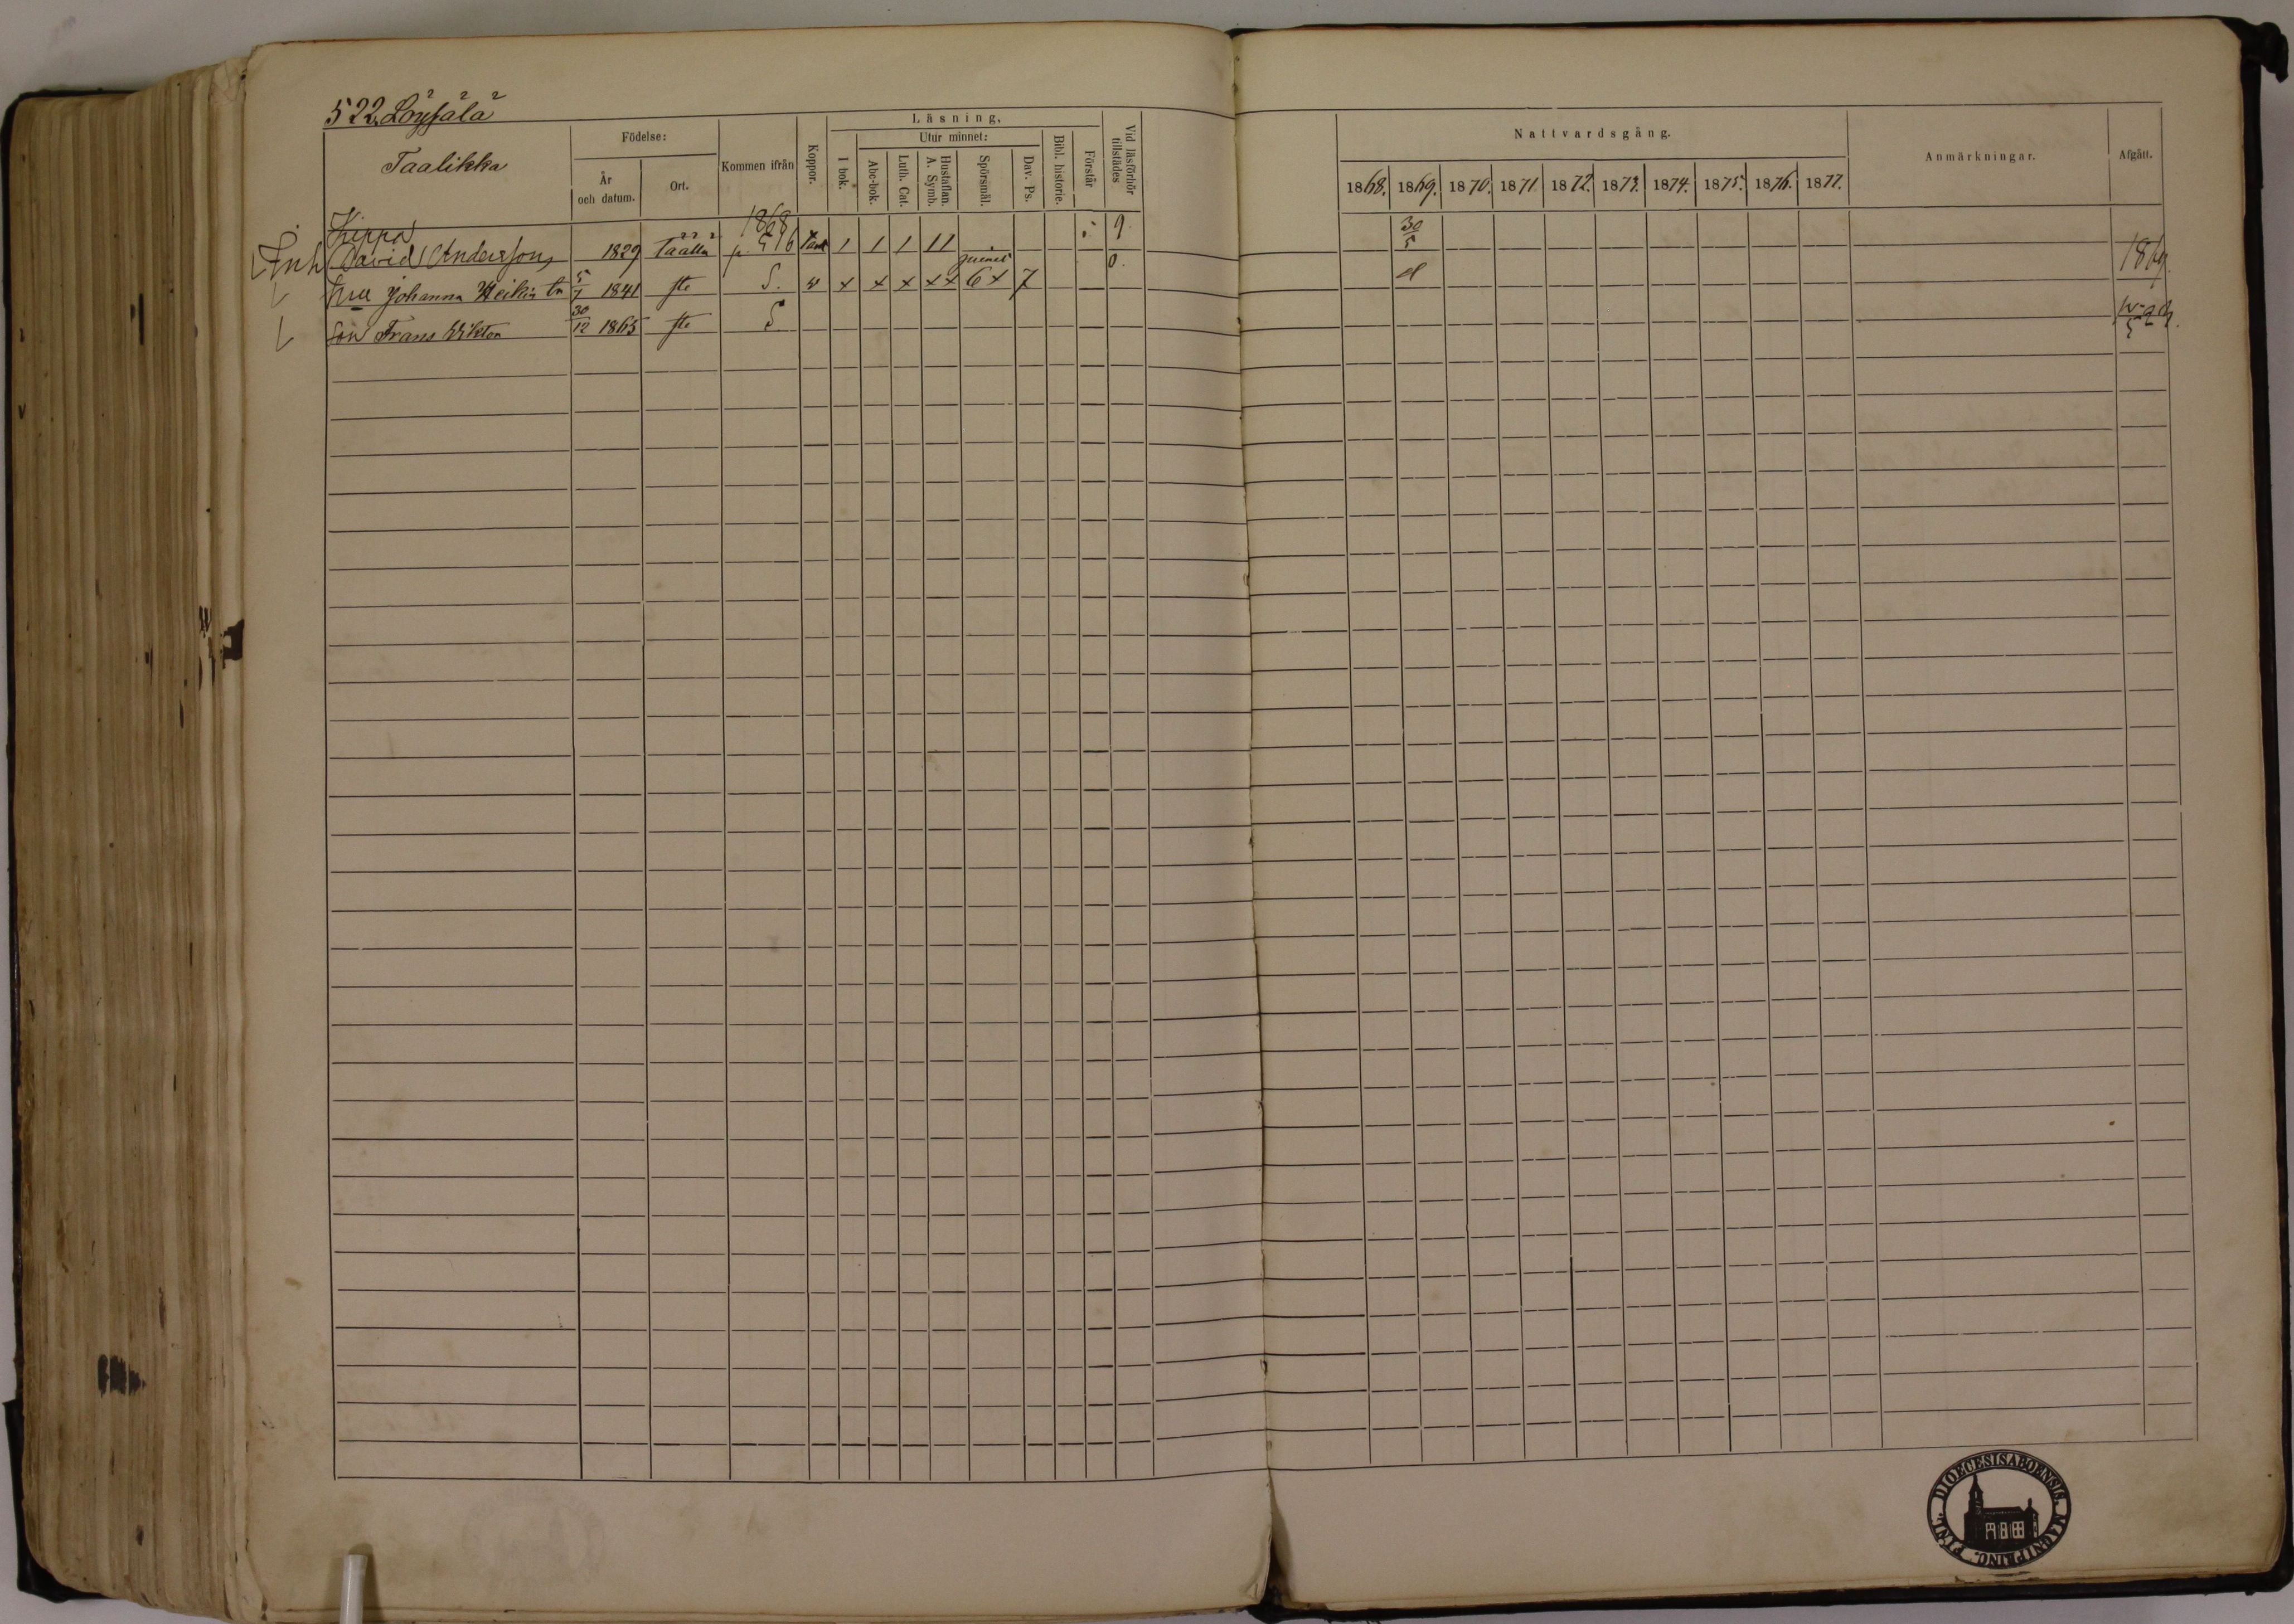 522. Löysälä
Taalikka
Födelse:
År och datum.
Ort.
Kommen ifrån
Koppor.
Läsning,
I bok.
Utur minnet:
Abc-bok.
Luth. Cat.
Hustaflan. A. Symb.
Spörsmål.
Dav. Ps.
Bibl. historie.
Förstår
Vid läsförhör tillstädes
Nattvardsgång.
1868. 1869. 1870. 1871. 1872. 1873. 1874. 1875. 1876. 1877.
Anmärkningar.
Afgått.
Kippa 1868 30/5
Inh David Andersson 1829 p. 516 1 1 1 11 1869.
Johanna Heikin tr 5/7 1841 S. v x x x xx 6x 7 0.
Son Frans Wiktor 30/12 1865 S
DIOECESIS ABOENSIS. MAGNI PRINC. FINL.